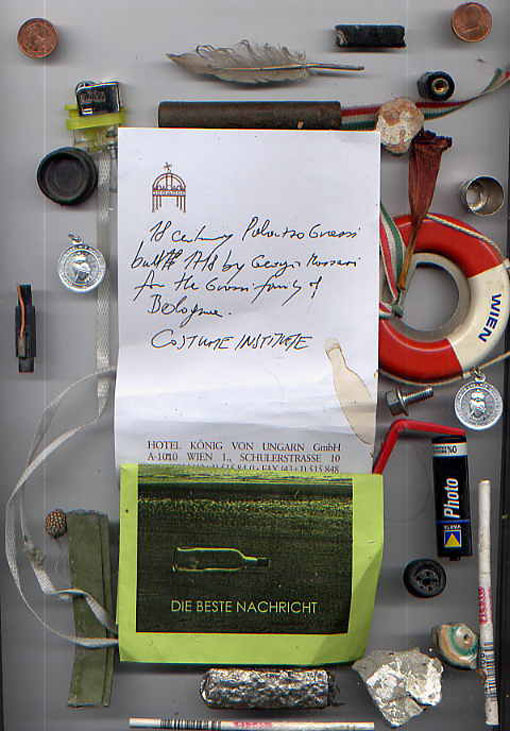 18 century Palazzo Grassi
built 1718 by Georgio Massari
for the Grassi family of
Bologna.
COSTUME INSTITUTE
HOTEL KÖNIG VON UNGARN GmbH
A-1010 WIEN 1., SCHULERSTRASSE 10
DIE BESTE NACHRICHT
WIEN
Photo